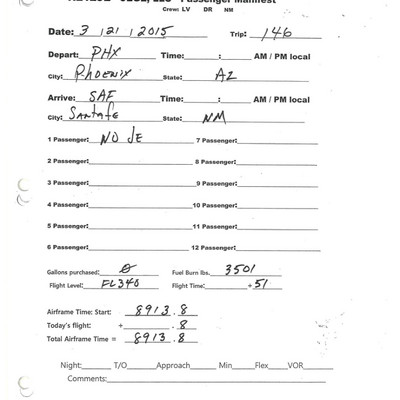 Passenger Manifest
Crew: LV DR NM
Date: 3 | 21 | 2015 Trip: 146
Depart: PHX Time: : AM / PM local
City: Phoenix State: AZ
Arrive: SAF Time: : AM / PM local
City: Santa fe State: NM
1 Passenger: NO JE 7 Passenger:
2 Passenger: 8 Passenger:
3 Passenger: 9 Passenger:
4 Passenger: 10 Passenger:
5 Passenger: 11 Passenger:
6 Passenger: 12 Passenger:
Gallons purchased: 0 Fuel Burn lbs. 3501
Flight Level: FL340 Flight Time: + 51
Airframe Time: Start: 8913.8
Today's flight: + .8
Total Airframe Time = 8913.8
Night: T/O Approach Min Flex VOR
Comments: